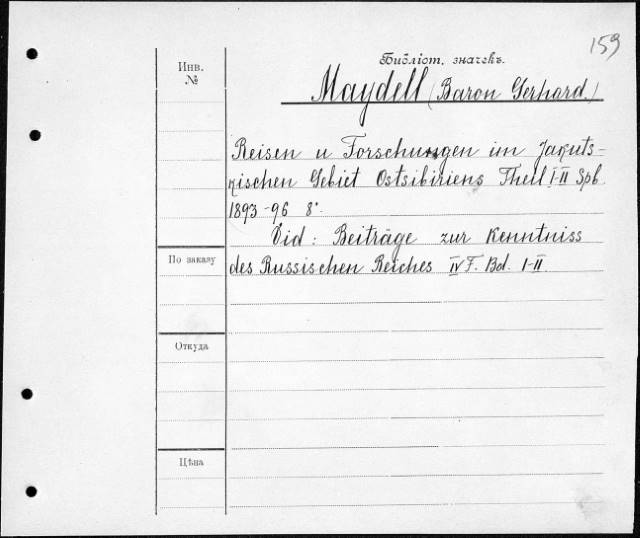 159
Библіот. значекъ.
Инв.
№
Maydell (Baron Gerhard.)
Reisen u Forschungen im Jakuts-
kischen Gebiet Ostsibiriens Theil I-II Spb.
1893-96 8°.
Vid: Beiträge zur Kenntniss
des Russischen Reiches IV F. Bd. I-II.
По заказу
Откуда
Цѣна